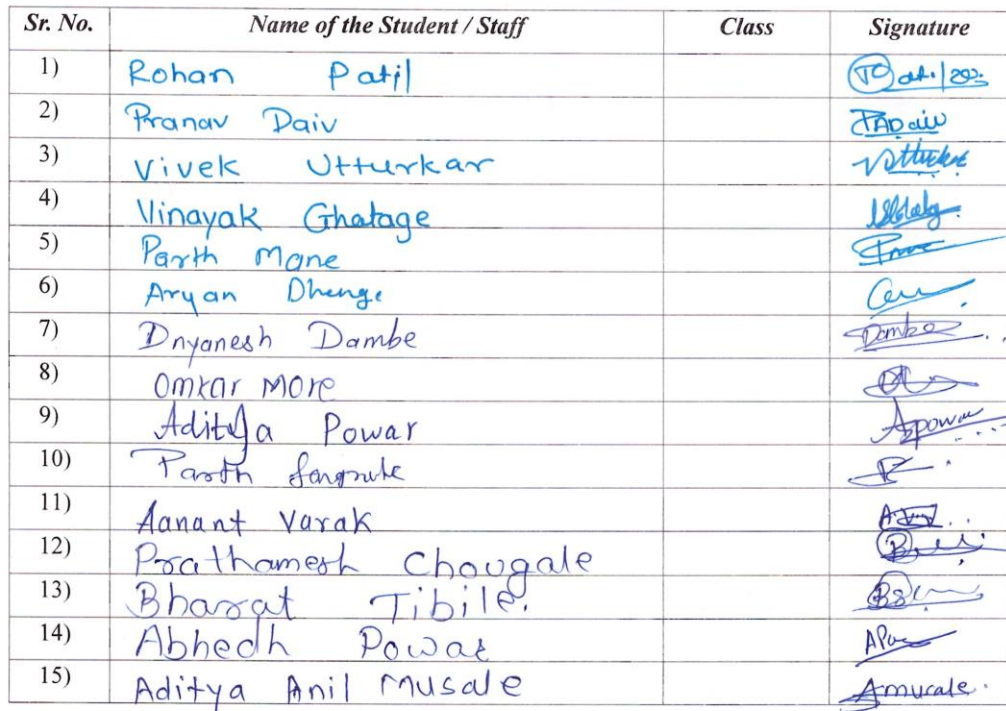 Sr. No. Name of the Student / Staff Class Signature
1) Rohan Patil
2) Pranav Daiv PADaiv
3) Vivek Utturkar
4) Vinayak Ghatage
5) Parth Mane
6) Aryan Dhenge
7) Dnyanesh Dambe Dambe
8) Omkar More
9) Aditya Powar Appowar
10) Parth
11) Aanant Varak
12) Prathamesh Chougale
13) Bharat Tibile.
14) Abhedh Powar
15) Aditya Anil Musale Amusale.